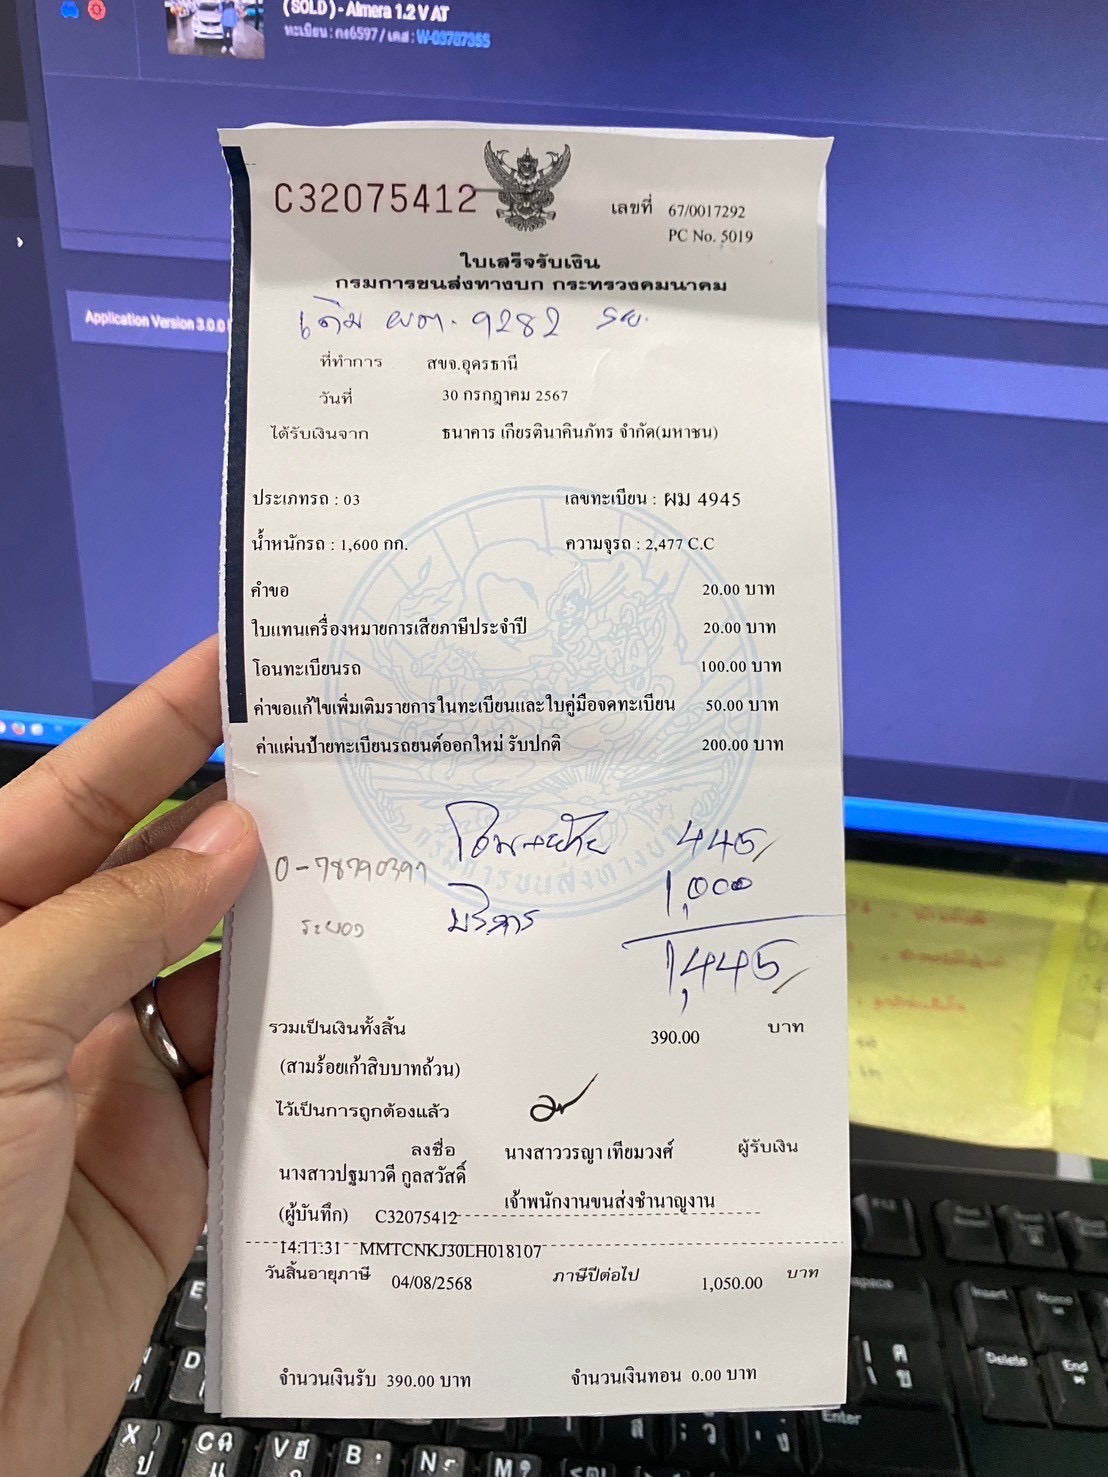 (SOLD) - Almera 1.2 V AT
ทะเบียน : กง6597 / เคส : W-03787355
Application Version 3.0.0
C32075412
เลขที่ 67/0017292
PC No. 5019
ใบเสร็จรับเงิน
กรมการขนส่งทางบก กระทรวงคมนาคม
เดิม ผต. 9282 รย.
ที่ทำการ สขจ.อุดรธานี
วันที่ 30 กรกฎาคม 2567
ได้รับเงินจาก ธนาคาร เกียรตินาคินภัทร จำกัด(มหาชน)
ประเภทรถ : 03 เลขทะเบียน : ผม 4945
น้ำหนักรถ : 1,600 กก. ความจุรถ : 2,477 C.C
คำขอ 20.00 บาท
ใบแทนเครื่องหมายการเสียภาษีประจำปี 20.00 บาท
โอนทะเบียนรถ 100.00 บาท
ค่าขอแก้ไขเพิ่มเติมรายการในทะเบียนและใบคู่มือจดทะเบียน 50.00 บาท
ค่าแผ่นป้ายทะเบียนรถยนต์ออกใหม่ รับปกติ 200.00 บาท
โอน+ย้าย 445/
0-78790397
บริการ 1,000
ระยอง
1,445/
กรมการขนส่งทางบก
รวมเป็นเงินทั้งสิ้น 390.00 บาท
(สามร้อยเก้าสิบบาทถ้วน)
ไว้เป็นการถูกต้องแล้ว
ลงชื่อ นางสาววรญา เทียมวงศ์ ผู้รับเงิน
นางสาวปฐมาวดี กูลสวัสดิ์
เจ้าพนักงานขนส่งชำนาญงาน
(ผู้บันทึก) C32075412
14:11:31 MMTCNKJ30LH018107
วันสิ้นอายุภาษี 04/08/2568 ภาษีปีต่อไป 1,050.00 บาท
จำนวนเงินรับ 390.00 บาท จำนวนเงินทอน 0.00 บาท
Insert
Home
Delete
End
Enter
E
D
X
C
V
B
N
M